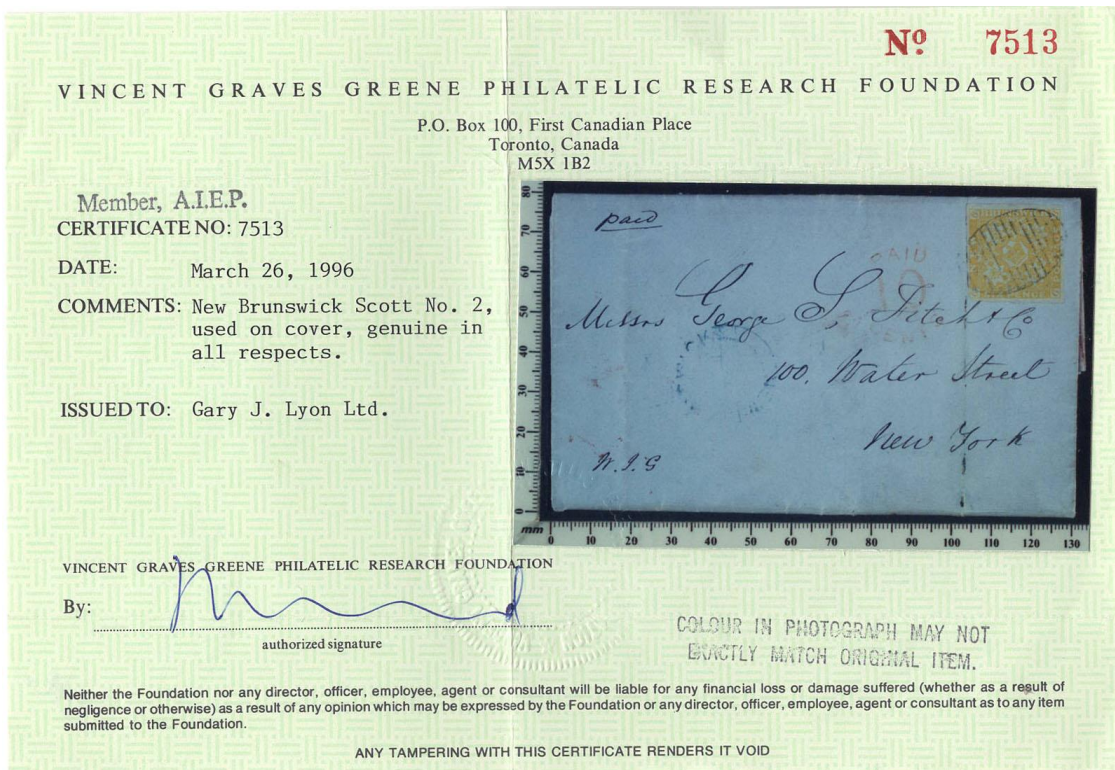 Nº 7513
VINCENT GRAVES GREENE PHILATELIC RESEARCH FOUNDATION
P.O. Box 100, First Canadian Place
Toronto, Canada
M5X 1B2
Member, A.I.E.P.
CERTIFICATE NO: 7513
DATE: March 26, 1996
COMMENTS: New Brunswick Scott No. 2,
used on cover, genuine in
all respects.
ISSUED TO: Gary J. Lyon Ltd.
80
70
60
50
40
30
20
10
0
mm
paid
PAID
10
Messrs George S. Fitch & Co
100. Water Street
New York
W.J.G
0 10 20 30 40 50 60 70 80 90 100 110 120 130
VINCENT GRAVES GREENE PHILATELIC RESEARCH FOUNDATION
By:
authorized signature
COLOUR IN PHOTOGRAPH MAY NOT
EXACTLY MATCH ORIGINAL ITEM.
Neither the Foundation nor any director, officer, employee, agent or consultant will be liable for any financial loss or damage suffered (whether as a result of
negligence or otherwise) as a result of any opinion which may be expressed by the Foundation or any director, officer, employee, agent or consultant as to any item
submitted to the Foundation.
ANY TAMPERING WITH THIS CERTIFICATE RENDERS IT VOID